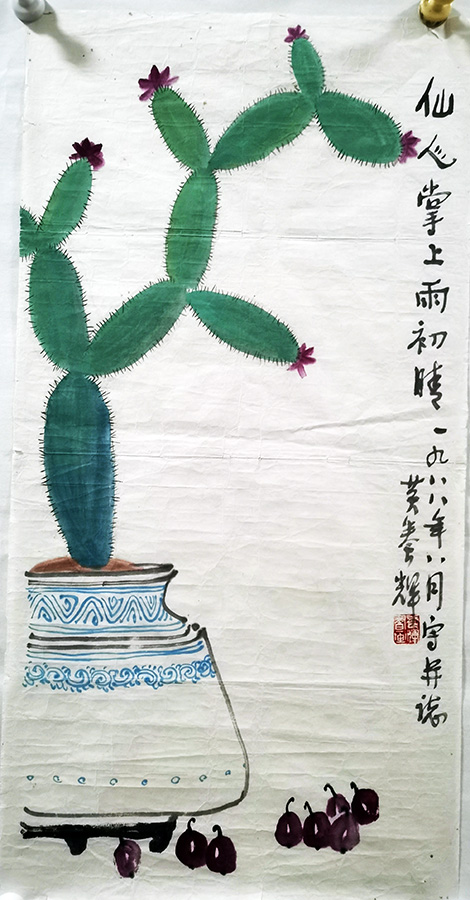 仙人掌上雨初晴一九八八年八月写并志
黄春辉